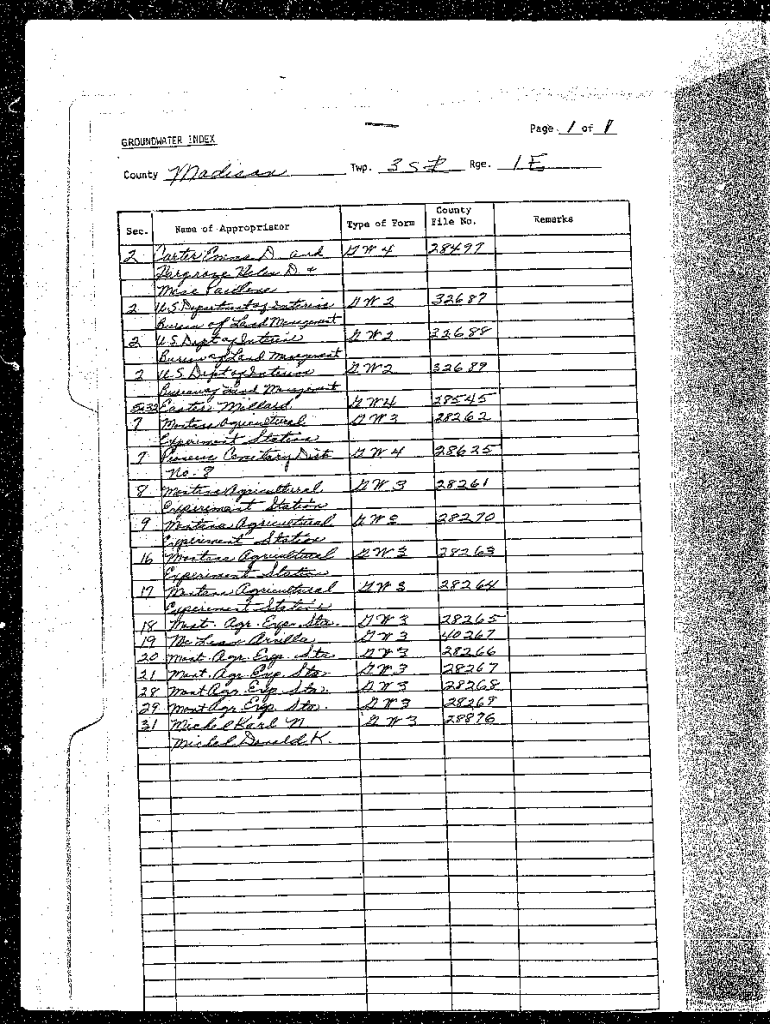 GROUNDWATER INDEX
Page 1 of 1
County Madison Twp. 3 S Rge. 1 E
Sec. Name of Appropriator Type of Form County File No. Remarks
2 Carter Emma D. and GW 4 28497
Hargrove Helen D &
2 U.S. Department of Interior GW 2 32687
Bureau of Land Management
2 U.S. Dept of Interior GW 2 32688
Bureau of Land Management
2 U.S. Dept of Interior GW 2 32689
Bureau of Land Management
Millard GW 4 28545
7 Montana Agricultural GW 3 28262
Experiment Station
7 Cemetary Dist GW 4 28625
No. 8
8 Montana Agricultural GW 3 28261
Experiment Station
9 Montana Agricultural GW 3 28270
Experiment Station
16 Montana Agricultural GW 3 28263
Experiment Station
17 Montana Agricultural GW 3 28264
Experiment Station
18 Mont. Agr. Expe. Sta. GW 3 28265
19 Arvilla GW 3 40267
20 Mont. Agr. Exp. Sta GW 3 28266
21 Mont. Agr. Exp. Sta. GW 3 28267
28 Mont Agr. Exp. Sta. GW 3 28268
29 Mont Agr. Exp. Sta. GW 3 28269
31 Michel Karl N GW 3 28876
Michel Donald K.